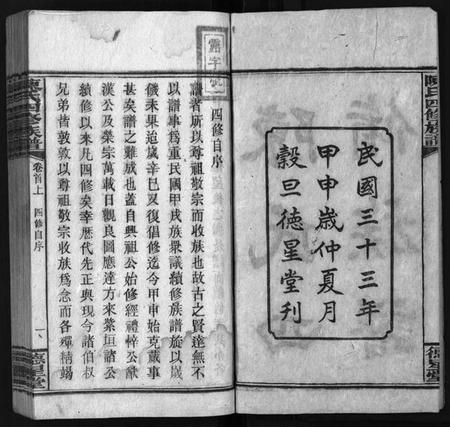 陳氏四修族譜
民國三十三年
甲申歲仲夏月
穀旦德星堂刊
德星堂
四修自序
譜者所以尊祖敬宗而收族也故古之賢達無不
以譜事為重民國甲戌族衆議續修族譜旋以歲
儉未果迨歲辛巳又復倡修迄今甲申始克蕆事
甚矣譜之難成也蓋自興祖公始修經禮悻公猷
漢公及榮宗萬載日觀良圖應達方來紫垣諸公
續修以來凡四修矣幸歷代先正與現今諸伯叔
兄弟皆敦敦以尊祖敬宗收族爲念而各殫精竭
陳氏四修族譜
卷首上
四修自序
一
德星堂